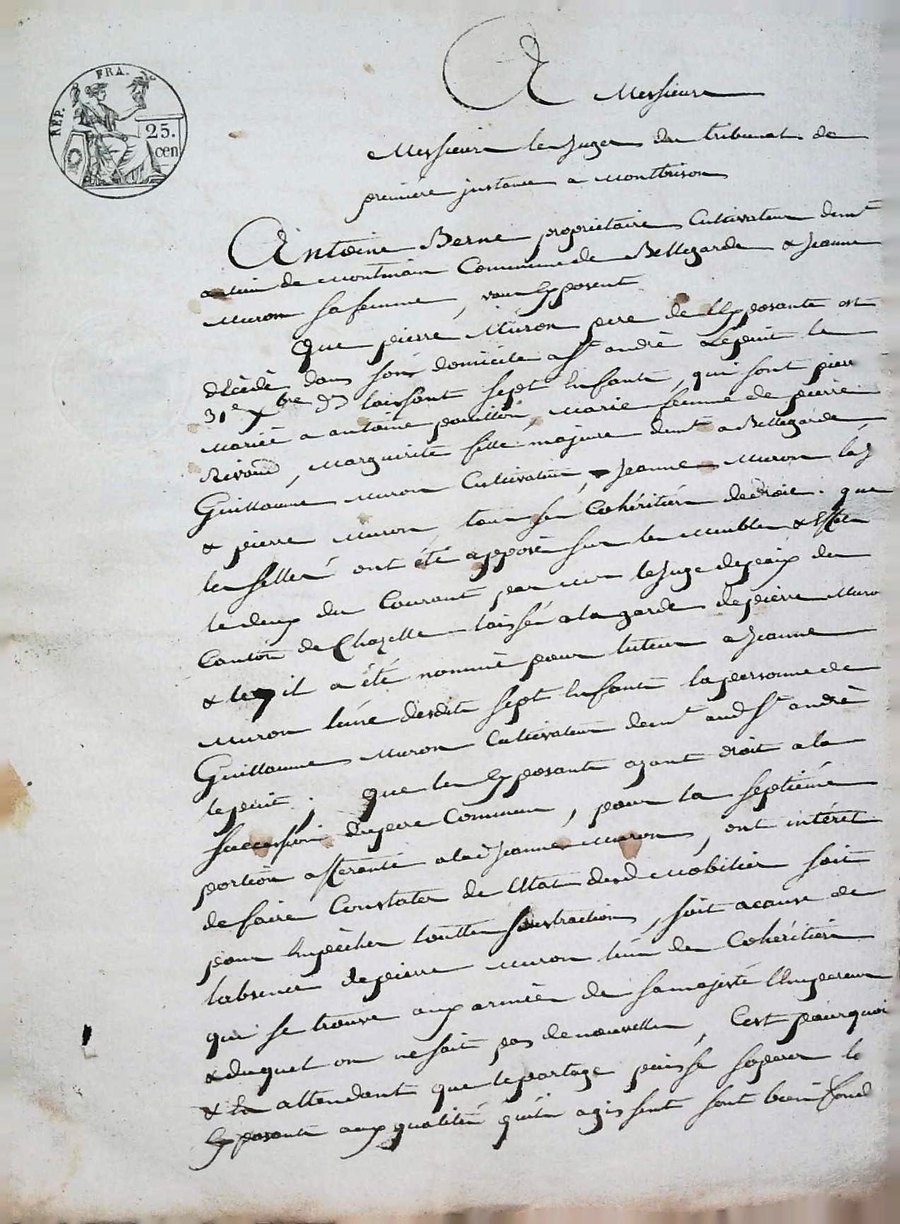 REP. FRA.
25.
cen
A Messieurs
Messieurs les Juges du tribunal de
première instance a Montbrison
Antoine Berne propriétaire Cultivateur demt
au lieu de Montmain Commune de Bellegarde & Jeanne
Muron sa femme, vous Exposent
Que pierre Muron pere de l'Exposante est
décédé dans son domicile a St andré Lepuit le
31e Xbre dr laissant sept Enfants, qui sont pierre
mariée a antoine pouillon, Marie femme de pierre
Rivoire, Marguerite fille majeure demt a Bellegarde
Guillaume Muron Cultivateur, Jeanne Muron
& pierre Muron, tous ses Cohéritiers de droit. que
les sellés ont été apposés sur les Meubles & Effets
le deux du Courant par mr le Juge de paix du
Canton de Chazelle laissés a la garde de pierre Muro
& le 7 il a été nommé pour tuteur a Jeanne
Muron l'une desdits sept Enfants la personne de
Guillaume Muron Cultivateur demt aud St andré
lepuit; que les Exposants ayant droit a la
succession du pere Commun, pour la septième
portion afferante a lad Jeanne Muron, ont intérêt
de faire Constater de l'Etat dud Mobilier soit
pour Empècher toutte soustraction, soit a cause de
l'absence de pierre Muron l'un des Cohéritiers
qui se trouve aux armées de sa majesté l'Empereur
& duquel on ne sait pas de nouvelles, C'est pourquoi
& En attendant que le partage puisse soperer les
Exposants aux qualités qu'ils agissent sont bien fond